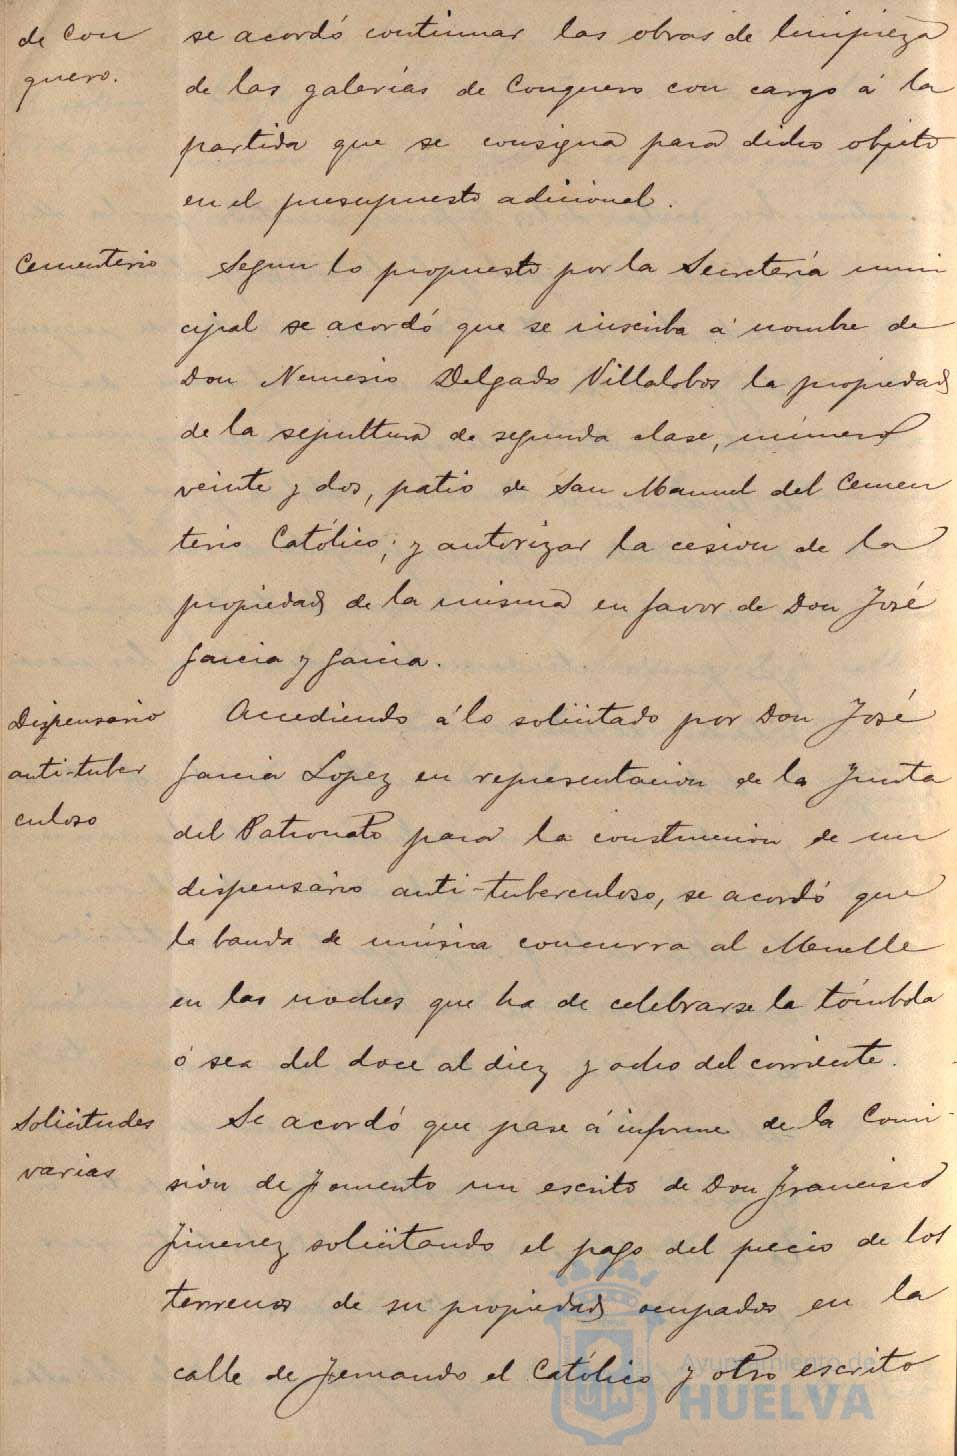 de Con
quero.
se acordó continuar las obras de limpieza
de las galerías de Conquero con cargo á la
partida que se consigna para dicho objeto
en el presupuesto adicional.
Cementerio
Segun lo propuesto por la Secretería muni
cipal se acordó que se inscriba á nombre de
Don Nemesio Delgado Villalobos la propiedad
de la sepultura de segunda clase, número
veinte y dos, patio de San Manuel del Cemen
terio Católico; y autorizar la cesion de la
propiedad de la misma en favor de Don José
Garcia y Garcia.
Dispensario
anti-tuber
culoso
Accediendo á lo solicitado por Don José
Garcia Lopez en representacion de la Junta
del Patronato para la construccion de un
dispensário anti-tuberculoso, se acordó que
la banda de música concurra al Muelle
en las noches que ha de celebrarse la tómbola
ó sea del doce al diez y ocho del corriente.
Solicitudes
varias
Se acordó que pase á informe de la Comi-
sion de Fomento un escrito de Don Francisco
Jimenez solicitando el pago del precio de los
terrenos de su propiedad ocupados en la
calle de Fernando el Católico y otro escrito
Ayuntamiento de
HUELVA